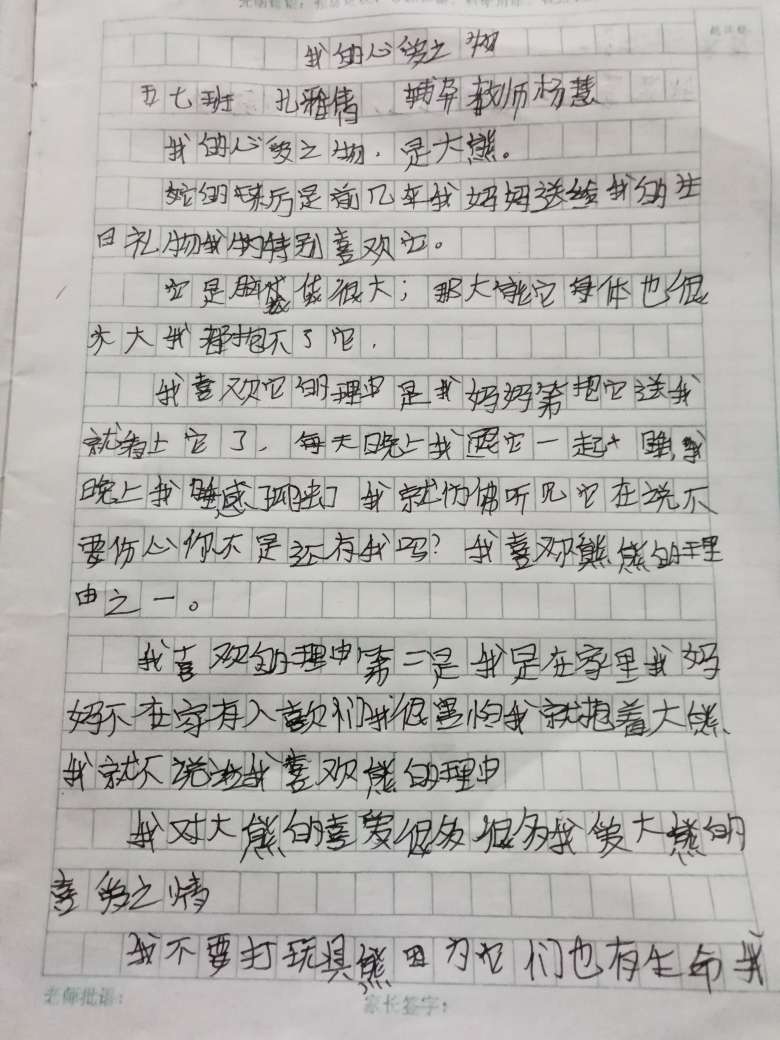 我的心爱之物
五七班 孔雅倩 辅导教师杨慧
我的心爱之物，是大熊。
它的来历是前几年我妈妈送给我的生
日礼物我的特别喜欢它。
它是脑袋很大；那大熊它身体也很
大大我都抱不了它，
我喜欢它的理由是我妈妈第把它送我
就爱上它了，每天晚上我跟它一起睡，我
晚上我睡感了 我就仿佛听见它在说不
要伤心你不是还有我吗？我喜欢熊熊的理
由之一。
我喜欢的理由第二是我是在家里我妈
妈不在家有人敲们我很害怕我就抱着大熊、
我就不 我喜欢熊的理由
我对大熊的喜爱很多很多我爱大熊的
喜爱之情
我不要打玩具熊因为它们也有生命我
老师批语：
家长签字：